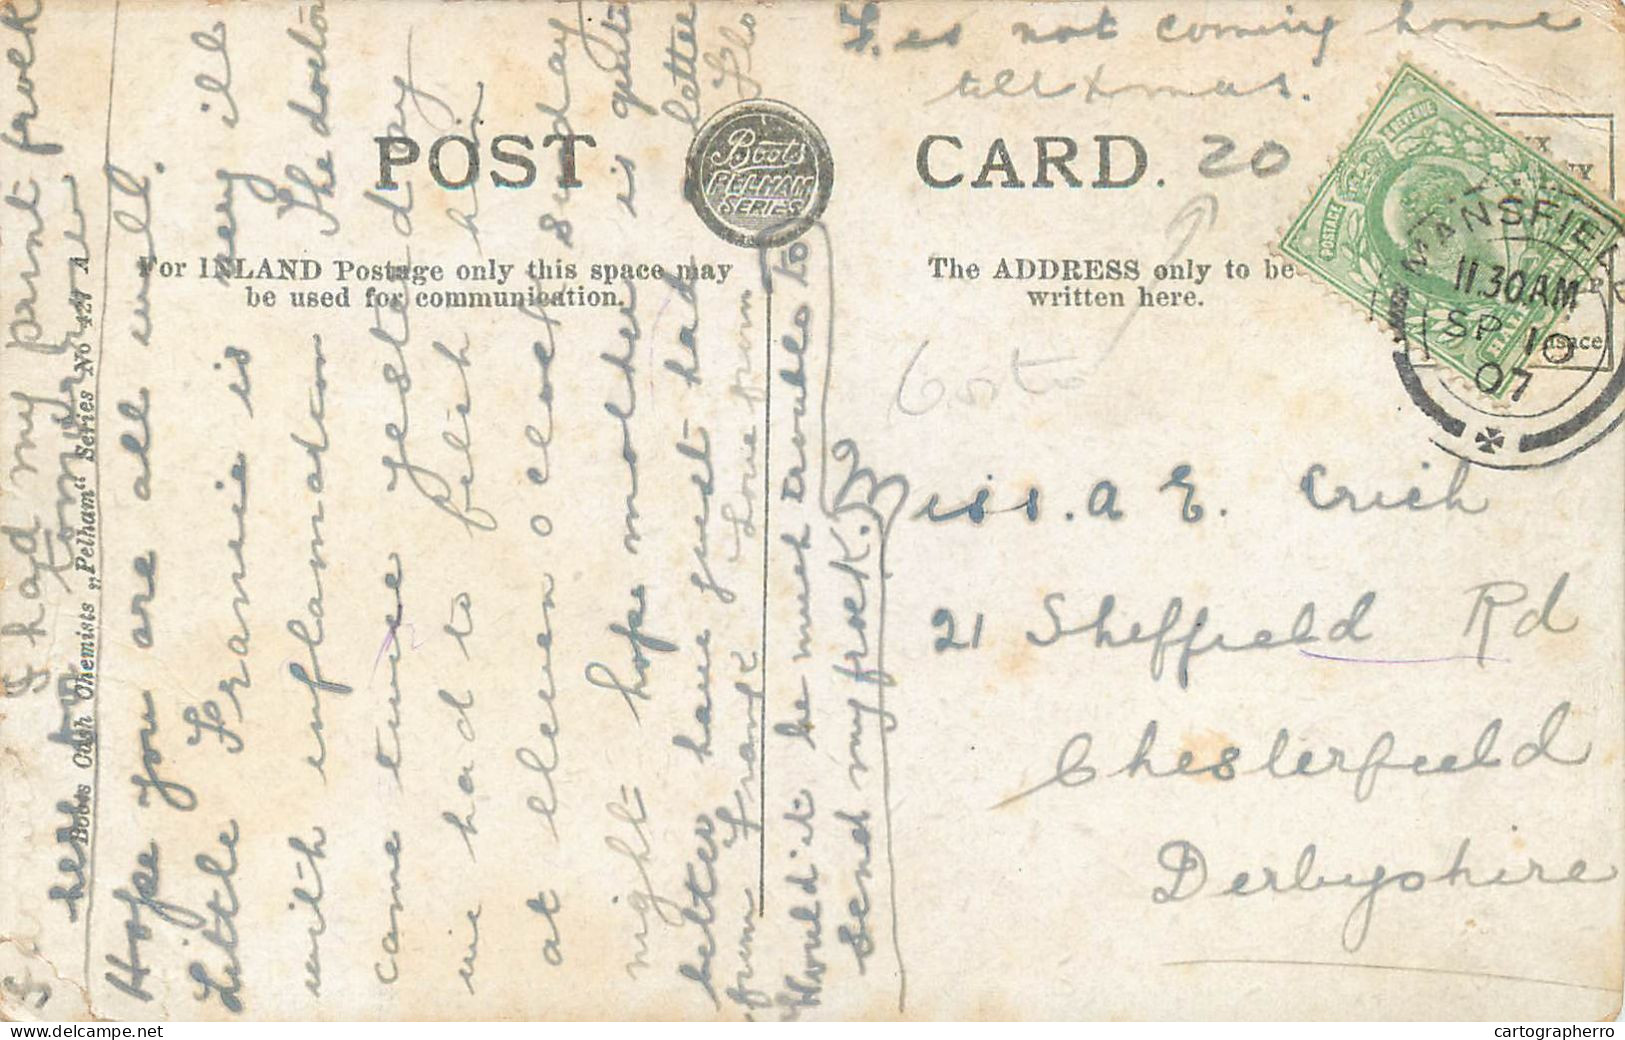 F. es not coming home
till Xmas.
POST CARD.
Boots
PELHAM
SERIES
20
For INLAND Postage only this space may
be used for communication.
The ADDRESS only to be
written here.
POSTAGE
REVENUE
MANSFIELD
11.30AM
SP 10
07
Miss. A E. Crich
21 Sheffield Rd
Chesterfield
Derbyshire
Boots Cash Chemists „Pelham“ Series No
I had my print frock
Hope you are all well.
Little Francie is very ill
with inflamation The doctor
came twice yesterday
we had to fetch him
at eleven o clock sunday
night hope mother is quite
better have just had letter
from Frank. Love from Flo
Would it be much trouble to
send my frock.